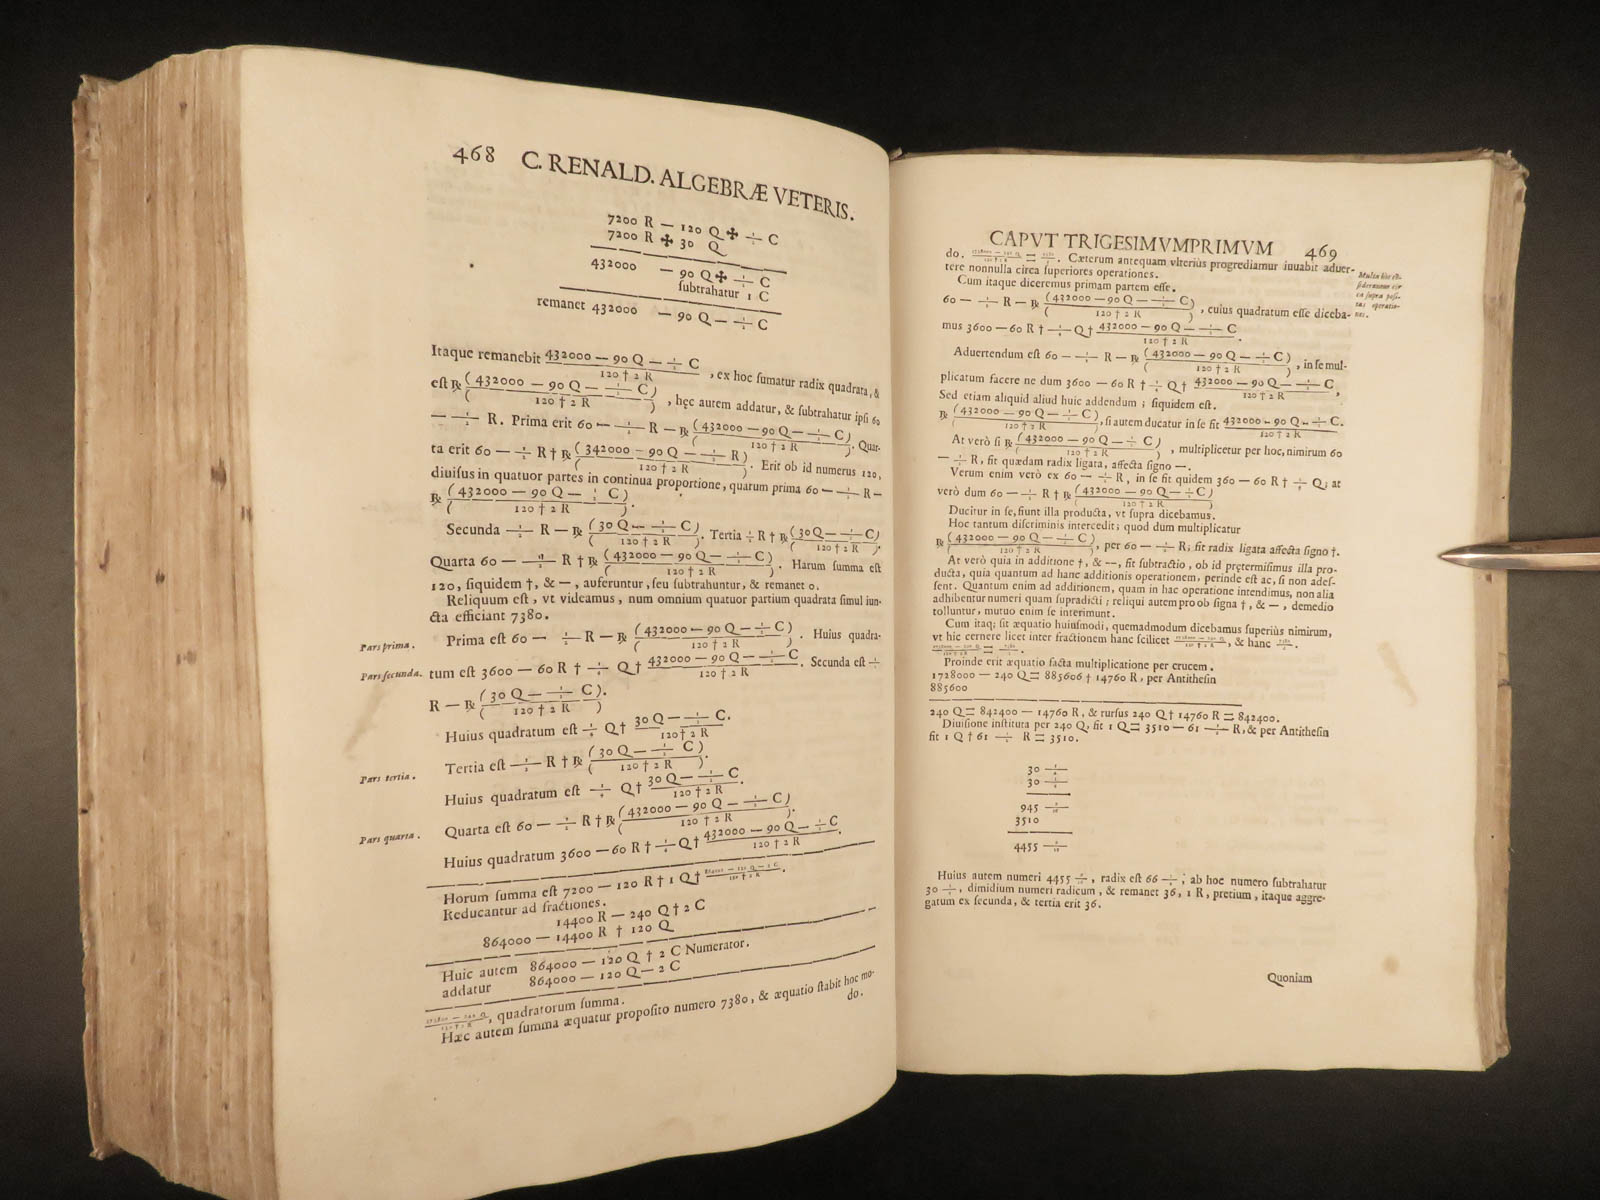 468 C. RENALD. ALGEBRÆ VETERIS.
7200 R — 120 Q ✠ ½ C
7200 R ✠ 30 Q
432000 — 90 Q ✠ ½ C
ſubtrahatur 1 C
remanet 432000 — 90 Q — ½ C
Itaque remanebit 432000 — 90 Q — ½ C / 120 † 2 R , ex hoc ſumatur radix quadrata, &
eſt ℞ (432000 — 90 Q — ½ C) / 120 † 2 R , hęc autem addatur, & ſubtrahatur ipſi 60
— ½ R. Prima erit 60 — ½ R — ℞ (432000 — 90 Q — ½ C) / 120 † 2 R . Quar-
ta erit 60 — ½ R † ℞ (342000 — 90 Q — ½ R) / 120 † 2 R . Erit ob id numerus 120,
diuiſus in quatuor partes in continua proportione, quarum prima 60 — ½ R —
℞ (432000 — 90 Q — ½ C) / 120 † 2 R .
Secunda ½ R — ℞ (30 Q — ½ C) / 120 † 2 R . Tertia ½ R † ℞ (30 Q — ½ C) / 120 † 2 R .
Quarta 60 — R † ℞ (432000 — 90 Q — ½ C) / 120 † 2 R . Harum ſumma eſt
120, ſiquidem †, & —, auferuntur, ſeu ſubtrahuntur, & remanet 0.
Reliquum eſt, vt videamus, num omnium quatuor partium quadrata ſimul iun-
cta efficiant 7380.
Pars prima. Prima eſt 60 — ½ R — ℞ (432000 — 90 Q — ½ C) / 120 † 2 R . Huius quadra-
Pars ſecunda. tum eſt 3600 — 60 R † ¼ Q † 432000 — 90 Q — ½ C / 120 † 2 R . Secunda eſt ½
R — ℞ (30 Q — ½ C) / 120 † 2 R .
Huius quadratum eſt ¼ Q † 30 Q — ½ C. / 120 † 2 R
Pars tertia. Tertia eſt ½ R † ℞ (30 Q — ½ C) / 120 † 2 R .
Huius quadratum eſt ¼ Q † 30 Q — ½ C / 120 † 2 R .
Pars quarta. Quarta eſt 60 — ½ R † ℞ (432000 — 90 Q — ½ C) / 120 † 2 R .
Huius quadratum 3600 — 60 R † ¼ Q † 432000 — 90 Q — ½ C / 120 † 2 R .
Horum ſumma eſt 7200 — 120 R † 1 Q †
Reducantur ad fractiones.
14400 R — 240 Q † 2 C
864000 — 14400 R † 120 Q
Huic autem 864000 — 120 Q † 2 C Numerator.
addatur 864000 — 120 Q — 2 C
, quadratorum ſumma.
Hæc autem ſumma æquatur propoſito numero 7380, & æquatio ſtabit hoc mo-
do.
CAPVT TRIGESIMVMPRIMVM 469
do. Cæterum antequam vlteriùs progrediamur iuuabit aduer-
tere nonnulla circa ſuperiores operationes.
Multa hic cō-
ſiderantur cir
ca ſupra poſi-
tas operatio-
nes.
Cum itaque diceremus primam partem eſſe.
60 — ½ R — ℞ (432000 — 90 Q — ½ C) / 120 † 2 R , cuius quadratum eſſe diceba-
mus 3600 — 60 R † ¼ Q † 432000 — 90 Q — ½ C / 120 † 2 R .
Aduertendum eſt 60 — ½ R — ℞ (432000 — 90 Q — ½ C) / 120 † 2 R , in ſe mul-
plicatum facere ne dum 3600 — 60 R † ¼ Q † 432000 — 90 Q — ½ C / 120 † 2 R ,
Sed etiam aliquid aliud huic addendum ; ſiquidem eſt.
℞ (432000 — 90 Q — ½ C) / 120 † 2 R , ſi autem ducatur in ſe fit 432000 — 90 Q — ½ C. / 120 † 2 R
At verò ſi ℞ (432000 — 90 Q — ½ C) / 120 † 2 R , multiplicetur per hoc, nimirum 60
— ½ R, fit quædam radix ligata, affecta ſigno —.
Verum enim verò ex 60 — ½ R, in ſe fit quidem 360 — 60 R † ¼ Q; at
verò dum 60 — ½ R † ℞ (432000 — 90 Q — ½ C) / 120 † 2 R
Ducitur in ſe, fiunt illa producta, vt ſupra dicebamus.
Hoc tantum diſcriminis intercedit; quod dum multiplicatur
℞ (432000 — 90 Q — ½ C) / 120 † 2 R , per 60 — ½ R, fit radix ligata affecta ſigno †.
At verò quia in additione †, & —, fit ſubtractio, ob id prętermiſimus illa pro-
ducta, quia quantum ad hanc additionis operationem, perinde eſt ac, ſi non adeſ-
ſent. Quantum enim ad additionem, quam in hac operatione intendimus, non alia
adhibentur numeri quam ſupradicti ; reliqui autem prò ob ſigna †, & —, demedio
tolluntur, mutuo enim ſe interimunt.
Cum itaq; ſit æquatio huiuſmodi, quemadmodum dicebamus ſuperiùs nimirum,
vt hic cernere licet inter fractionem hanc ſcilicet , & hanc
Proinde erit æquatio facta multiplicatione per crucem.
1728000 — 240 Q = 885606 † 14760 R, per Antitheſin
885600
240 Q = 842400 — 14760 R, & rurſus 240 Q † 14760 R = 842400.
Diuiſione inſtituta per 240 Q, fit 1 Q = 3510 — 61 ½ R, & per Antitheſin
fit 1 Q † 61 ½ R = 3510.
30
30
945
3510
4455
Huius autem numeri 4455 , radix eſt 66 ; ab hoc numero ſubtrahatur
30 , dimidium numeri radicum, & remanet 36, 1 R, pretium, itaque aggre-
gatum ex ſecunda, & tertia erit 36.
Quoniam